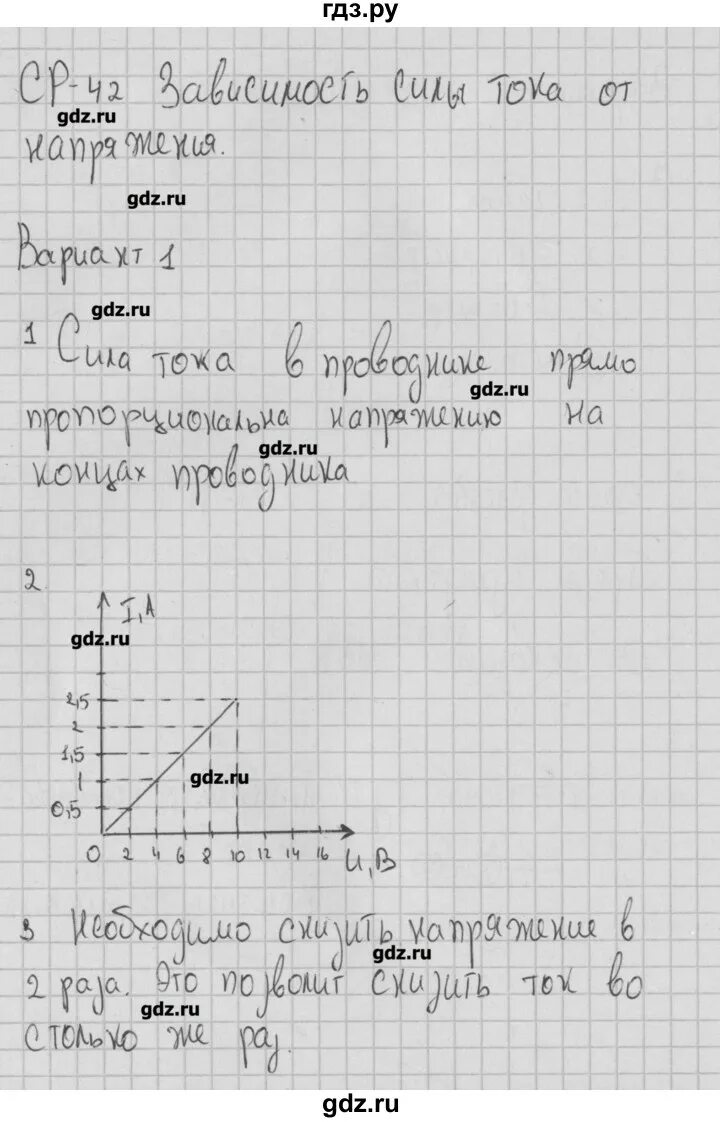 гдз.ру
СР-42 Зависимость силы тока от
gdz.ru
напряжения.
gdz.ru
Вариант 1
gdz.ru
1 Сила тока в проводнике прямо
gdz.ru
пропорциональна напряжению на
gdz.ru
концах проводника
2
I,А
gdz.ru
2,5
2
1,5
gdz.ru
1
0,5
0 2 4 6 8 10 12 14 16 U,В
3 Необходимо снизить напряжение в
gdz.ru
2 раза. Это позволит снизить ток во
gdz.ru
столько же раз.
gdz.ru